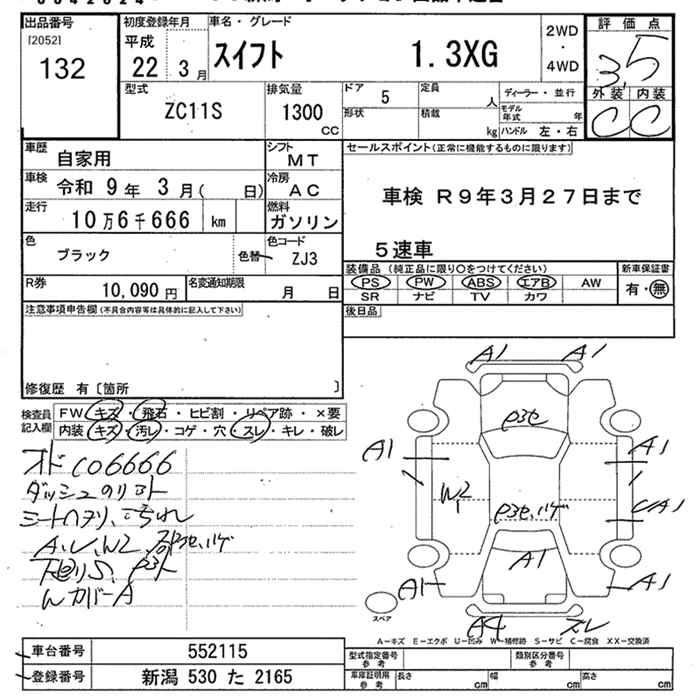 出品番号
[2052]
132
初度登録年月
平成
22 年 3 月
車名・グレード
スイフト 1.3XG
2WD
・
4WD
評価点
3.5
外装 内装
C C
型式
ZC11S
排気量
1300
CC
ドア
5
形状
定員
人
積載
kg
ディーラー・並行
モデル年式
年
ハンドル 左・右
車歴
自家用
シフト
MT
車検
令和 9年 3月( 日)
冷房
AC
走行
10万6千666 km
燃料
ガソリン
色
ブラック
色替
色コード
ZJ3
R券
10,090 円
名変通知期限
月 日
セールスポイント(正常に機能するものに限ります)
車検 R9年3月27日まで
5速車
装備品 (純正品に限り○をつけてください)
PS PW ABS エアB AW
SR ナビ TV カワ
新車保証書
有・無
後日品
注意事項申告欄(不具合内容等は具体的に記入して下さい)
修復歴 有〔箇所 〕
検査員記入欄
FW キズ・飛石・ヒビ割・リペア跡・×要
内装 キズ・汚レ・コゲ・穴・スレ・キレ・破レ
A1 A1
A1
A1
W2
A1
A1
A1
A1
A4
スレ
スペア
A−キズ E−エクボ U−凹み W−補修跡 S−サビ C−腐食 XX−交換済
車台番号
552115
登録番号
新潟 530 た 2165
型式指定番号
参考
類別区分番号
参考
車庫証明用
参考
長さ cm
幅 cm
高さ cm